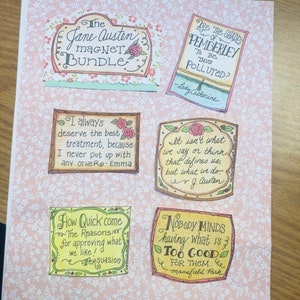 The
Jane Austen
MAGNET
BUNDLE
Are the shades
of
PEMBERLEY
to be
thus
POLLUTED?
-Lady Catherine
I always
deserve the best
treatment, because
I never put up with
any other- Emma
It isn't what
we say or think
that defines us,
but what we do
J. Austen
How Quick come
The Reasons
for approving what
we like!
Persuasion
NOBODY MINDS
having what is
Too GOOD
FOR THEM
mansfield Park